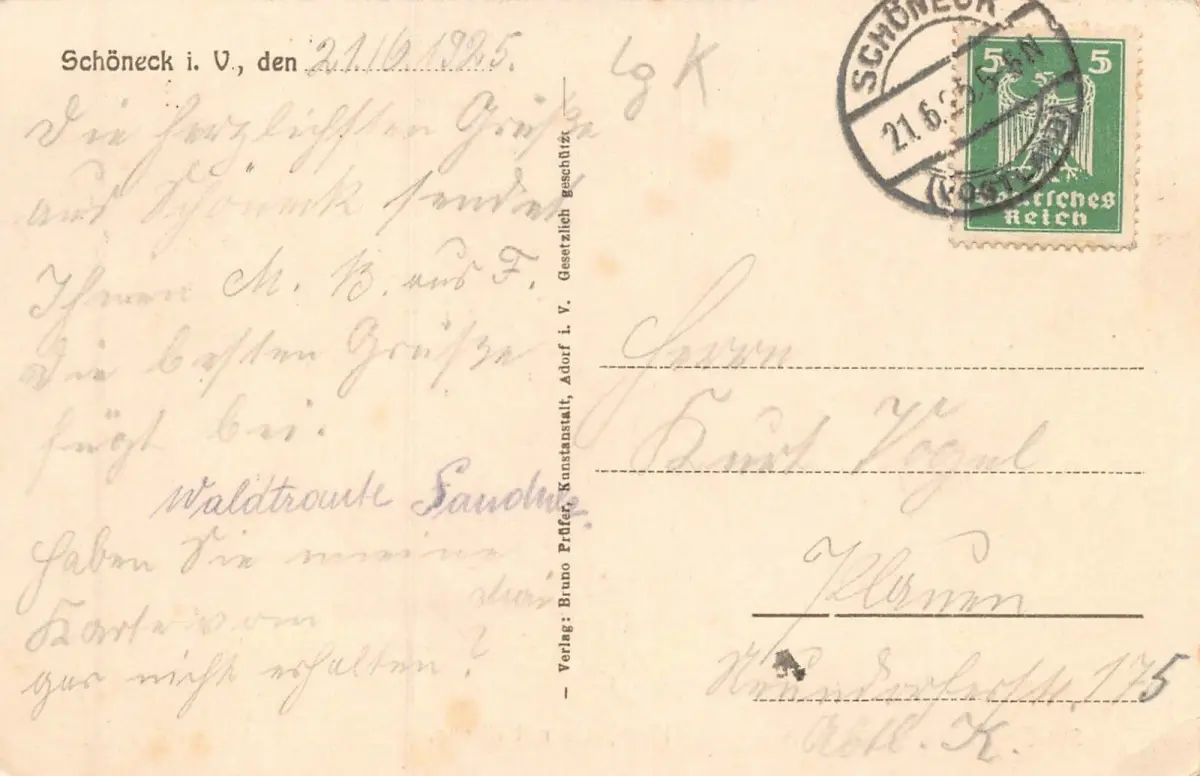 Schöneck i. V., den 21.6.1925.
Die herzlichsten Grüße
aus Schöneck sendet
Ihnen M. B. aus F.
Die besten Grüße
fügt bei.
Waldtraute
Haben Sie meine
Karte vom
gar nicht erhalten?
Verlag: Bruno Prüfer, Kunstanstalt, Adorf i. V. Gesetzlich geschützt
K
SCHÖNECK
21.6.25.5-6N
(VOGTLAND)
5 5
Deutsches
Reich
Herrn
Kurt Vogel
Plauen
Neundorferstr. 175
Abtl. K.